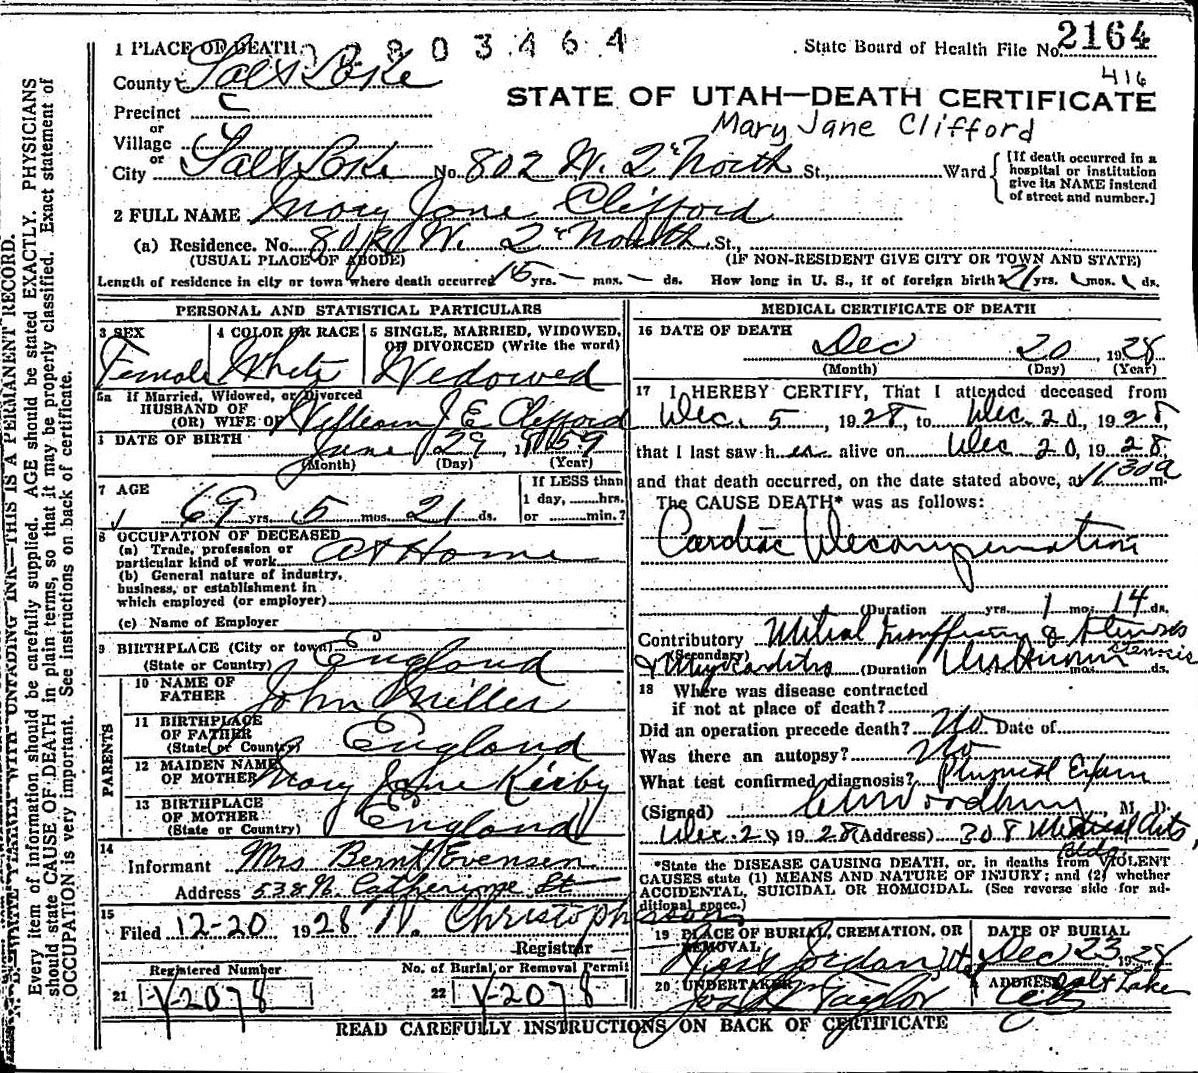 2164
1 PLACE OF DEATH 2803464 State Board of Health File No.
County Salt Lake 416
Precinct STATE OF UTAH—DEATH CERTIFICATE
or
Village Mary Jane Clifford
or
City Salt Lake No. 802 W. 2nd North St., Ward [If death occurred in a hospital or institution give its NAME instead of street and number.]
2 FULL NAME Mary Jane Clifford
(a) Residence. No. 802 W. 2nd North St.,
(USUAL PLACE OF ABODE) (IF NON-RESIDENT GIVE CITY OR TOWN AND STATE)
Length of residence in city or town where death occurred 15 yrs. — mos. — ds. How long in U. S., if of foreign birth? 21 yrs. mos. ds.
PERSONAL AND STATISTICAL PARTICULARS
3 SEX 4 COLOR OR RACE 5 SINGLE, MARRIED, WIDOWED,
OR DIVORCED (Write the word)
Female White Widowed
5a If Married, Widowed, or Divorced
HUSBAND OF
(OR) WIFE OF William J E Clifford
DATE OF BIRTH June 29, 1859
(Month) (Day) (Year)
7 AGE If LESS than
1 day, hrs.
69 yrs. 5 mos. 21 ds. or min.?
8 OCCUPATION OF DECEASED
(a) Trade, profession or
particular kind of work At Home
(b) General nature of industry,
business, or establishment in
which employed (or employer)
(c) Name of Employer
9 BIRTHPLACE (City or town)
(State or Country) England
PARENTS
10 NAME OF
FATHER John Miller
11 BIRTHPLACE
OF FATHER
(State or Country) England
12 MAIDEN NAME
OF MOTHER Mary Jane Kirby
13 BIRTHPLACE
OF MOTHER
(State or Country) England
14
Informant Mrs Bernt Evensen
Address 538 N. Catherine St
15
Filed 12-20 1928 N. Christopherson
Registrar
Registered Number No. of Burial or Removal Permit
21 V-2078 22 V-2078
MEDICAL CERTIFICATE OF DEATH
16 DATE OF DEATH
Dec 20 1928
(Month) (Day) (Year)
17 I HEREBY CERTIFY, That I attended deceased from
Dec. 5, 1928, to Dec. 20, 1928,
that I last saw her alive on Dec 20, 1928,
and that death occurred, on the date stated above, at 11 30 a m.
The CAUSE DEATH* was as follows:
Cardiac Decompensation
(Duration yrs. 1 mos. 14 ds.
Contributory Mitral Insufficiency & Stenosis
stenosis
(Secondary)
& Myocarditis (Duration Unknown mos. ds.
18 Where was disease contracted
if not at place of death?
Did an operation precede death? No Date of
Was there an autopsy? No
What test confirmed diagnosis? Physical Exam
(Signed) Woodbury M. D.
Dec. 1928 (Address) 308 Medical Arts,
Bldg
*State the DISEASE CAUSING DEATH, or, in deaths from VIOLENT
CAUSES state (1) MEANS AND NATURE OF INJURY; and (2) whether
ACCIDENTAL, SUICIDAL OR HOMICIDAL. (See reverse side for ad-
ditional space.)
19 PLACE OF BURIAL, CREMATION, OR DATE OF BURIAL
REMOVAL
West Jordan Ut Dec 23 1928
20 UNDERTAKER ADDRESS Salt Lake
Taylor City
READ CAREFULLY INSTRUCTIONS ON BACK OF CERTIFICATE
N. B. WRITE PLAINLY WITH UNFADING INK—THIS IS A PERMANENT RECORD.
Every item of information should be carefully supplied. AGE should be stated EXACTLY. PHYSICIANS
should state CAUSE OF DEATH in plain terms, so that it may be properly classified. Exact statement of
OCCUPATION is very important. See instructions on back of certificate.